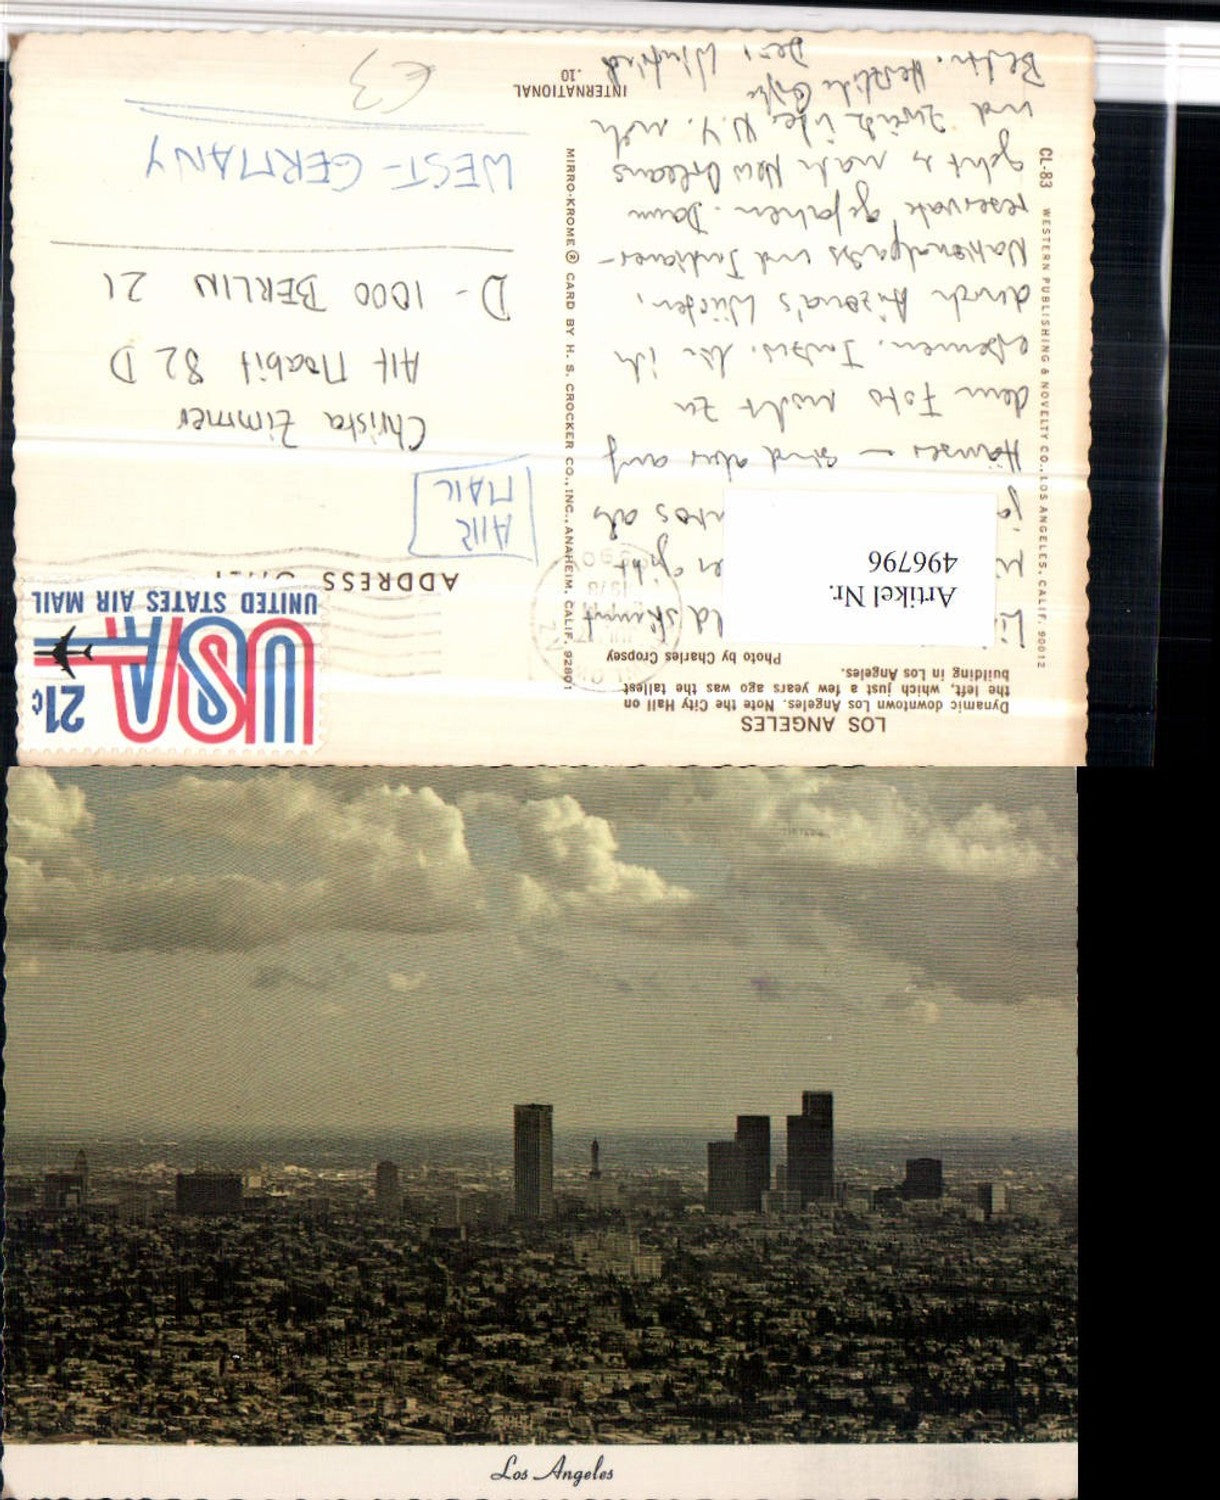 LOS ANGELES
Dynamic downtown Los Angeles. Note the City Hall on
the left, which just a few years ago was the tallest
building in Los Angeles.
Photo by Charles Cropsey
Artikel Nr.
496796
Häuser – sind aber auf
dem Foto nicht zu
erkennen. Inzw. bin ich
durch Arizona's Wüsten,
Nationalparks und Indianer-
reservate gefahren. Dann
geht's nach New Orleans
und zurück über N.Y. nach
Berlin. Herzliche Grüße
CL-83 WESTERN PUBLISHING & NOVELTY CO., LOS ANGELES, CALIF. 90012
MIRRO-KROME® CARD BY H. S. CROCKER CO., INC., ANAHEIM, CALIF. 92801
INTERNATIONAL
.10
USA
21c
UNITED STATES AIR MAIL
ADDRESS
AIR
MAIL
Christa Zimmer
Alt Moabit 82 D
D - 1000 BERLIN 21
WEST-GERMANY
€3
Los Angeles